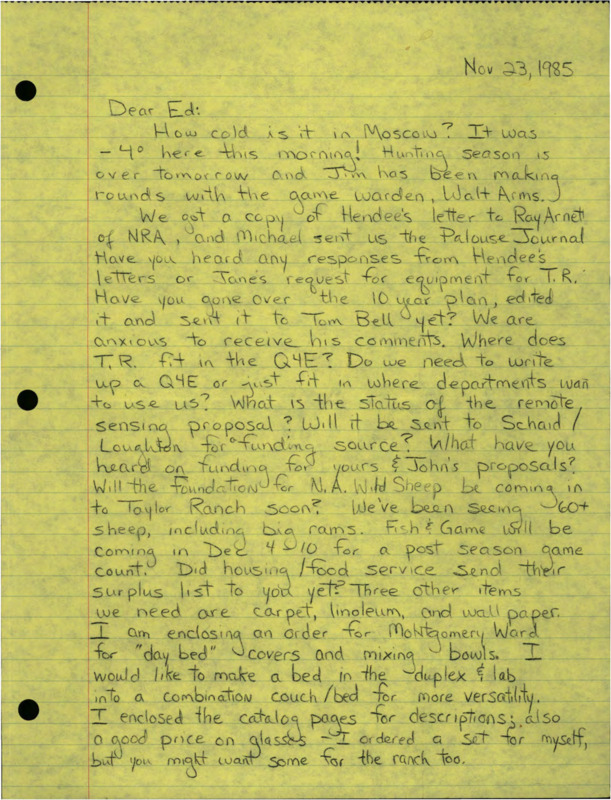 Nov 23, 1985
Dear Ed:
How cold is it in Moscow? It was
-4° here this morning! Hunting season is
over tomorrow and Jim has been making
rounds with the game warden, Walt Arms.
We got a copy of Hendee's letter to Ray Arnet
of NRA, and Michael sent us the Palouse Journal
Have you heard any responses from Hendee's
letters or Jane's request for equipment for T.R.
Have you gone over the 10 year plan, edited
it and sent it to Tom Bell yet? We are
anxious to receive his comments. Where does
T.R. fit in the Q4E? Do we need to write
up a Q4E or just fit in where departments wan
to use us? What is the status of the remote
sensing proposal? Will it be sent to Schaid/
Loughton for funding source? What have you
heard on funding for yours & John's proposals?
Will the Foundation for N.A. Wild Sheep be coming in
to Taylor Ranch soon? We've been seeing 60+
sheep, including big rams. Fish & Game will be
coming in Dec 4-10 for a post season game
count. Did housing/food service send their
surplus list to you yet? Three other items
we need are carpet, linoleum, and wall paper.
I am enclosing an order for Montgomery Ward
for "day bed" covers and mixing bowls. I
would like to make a bed in the duplex & lab
into a combination couch/bed for more versatility.
I enclosed the catalog pages for descriptions; also
a good price on glasses - I ordered a set for myself,
but you might want some for the ranch too.